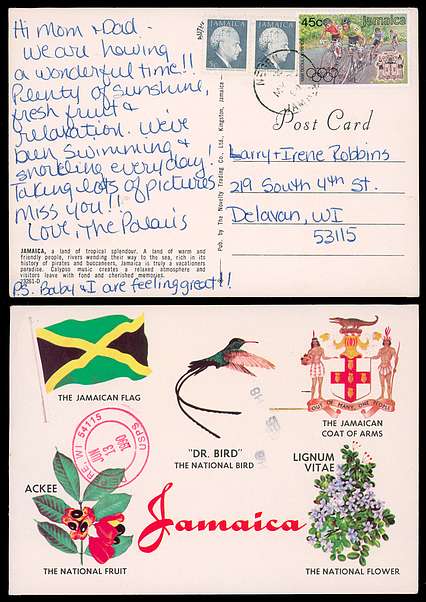 Hi Mom & Dad.
We are having
a wonderful time!!
Plenty of sunshine,
fresh fruit &
relaxation. We've
been swimming &
snorkling everyday!
Taking lots of pictures
miss you!!
Love, The Palais
JAMAICA, a land of tropical splendour. A land of warm and
friendly people, rivers wending their way to the sea, rich in its
history of pirates and buccaneers, Jamaica is truly a vacationers
paradise. Calypso music creates a relaxed atmosphere and
visitors leave with fond and cherished memories.
PS. Baby & I are feeling great!!
Pub. by The Novelty Trading Co., Ltd., Kingston, Jamaica
JAMAICA
5c
JAMAICA
45c Jamaica
Post Card
Larry & Irene Robbins
219 South 4th St.
Delavan, WI
53115
THE JAMAICAN FLAG
"DR. BIRD"
THE NATIONAL BIRD
OUT OF MANY, ONE PEOPLE
THE JAMAICAN
COAT OF ARMS
WI 54115
USPS
JUN
13
1990
ACKEE
THE NATIONAL FRUIT
Jamaica
LIGNUM
VITAE
THE NATIONAL FLOWER